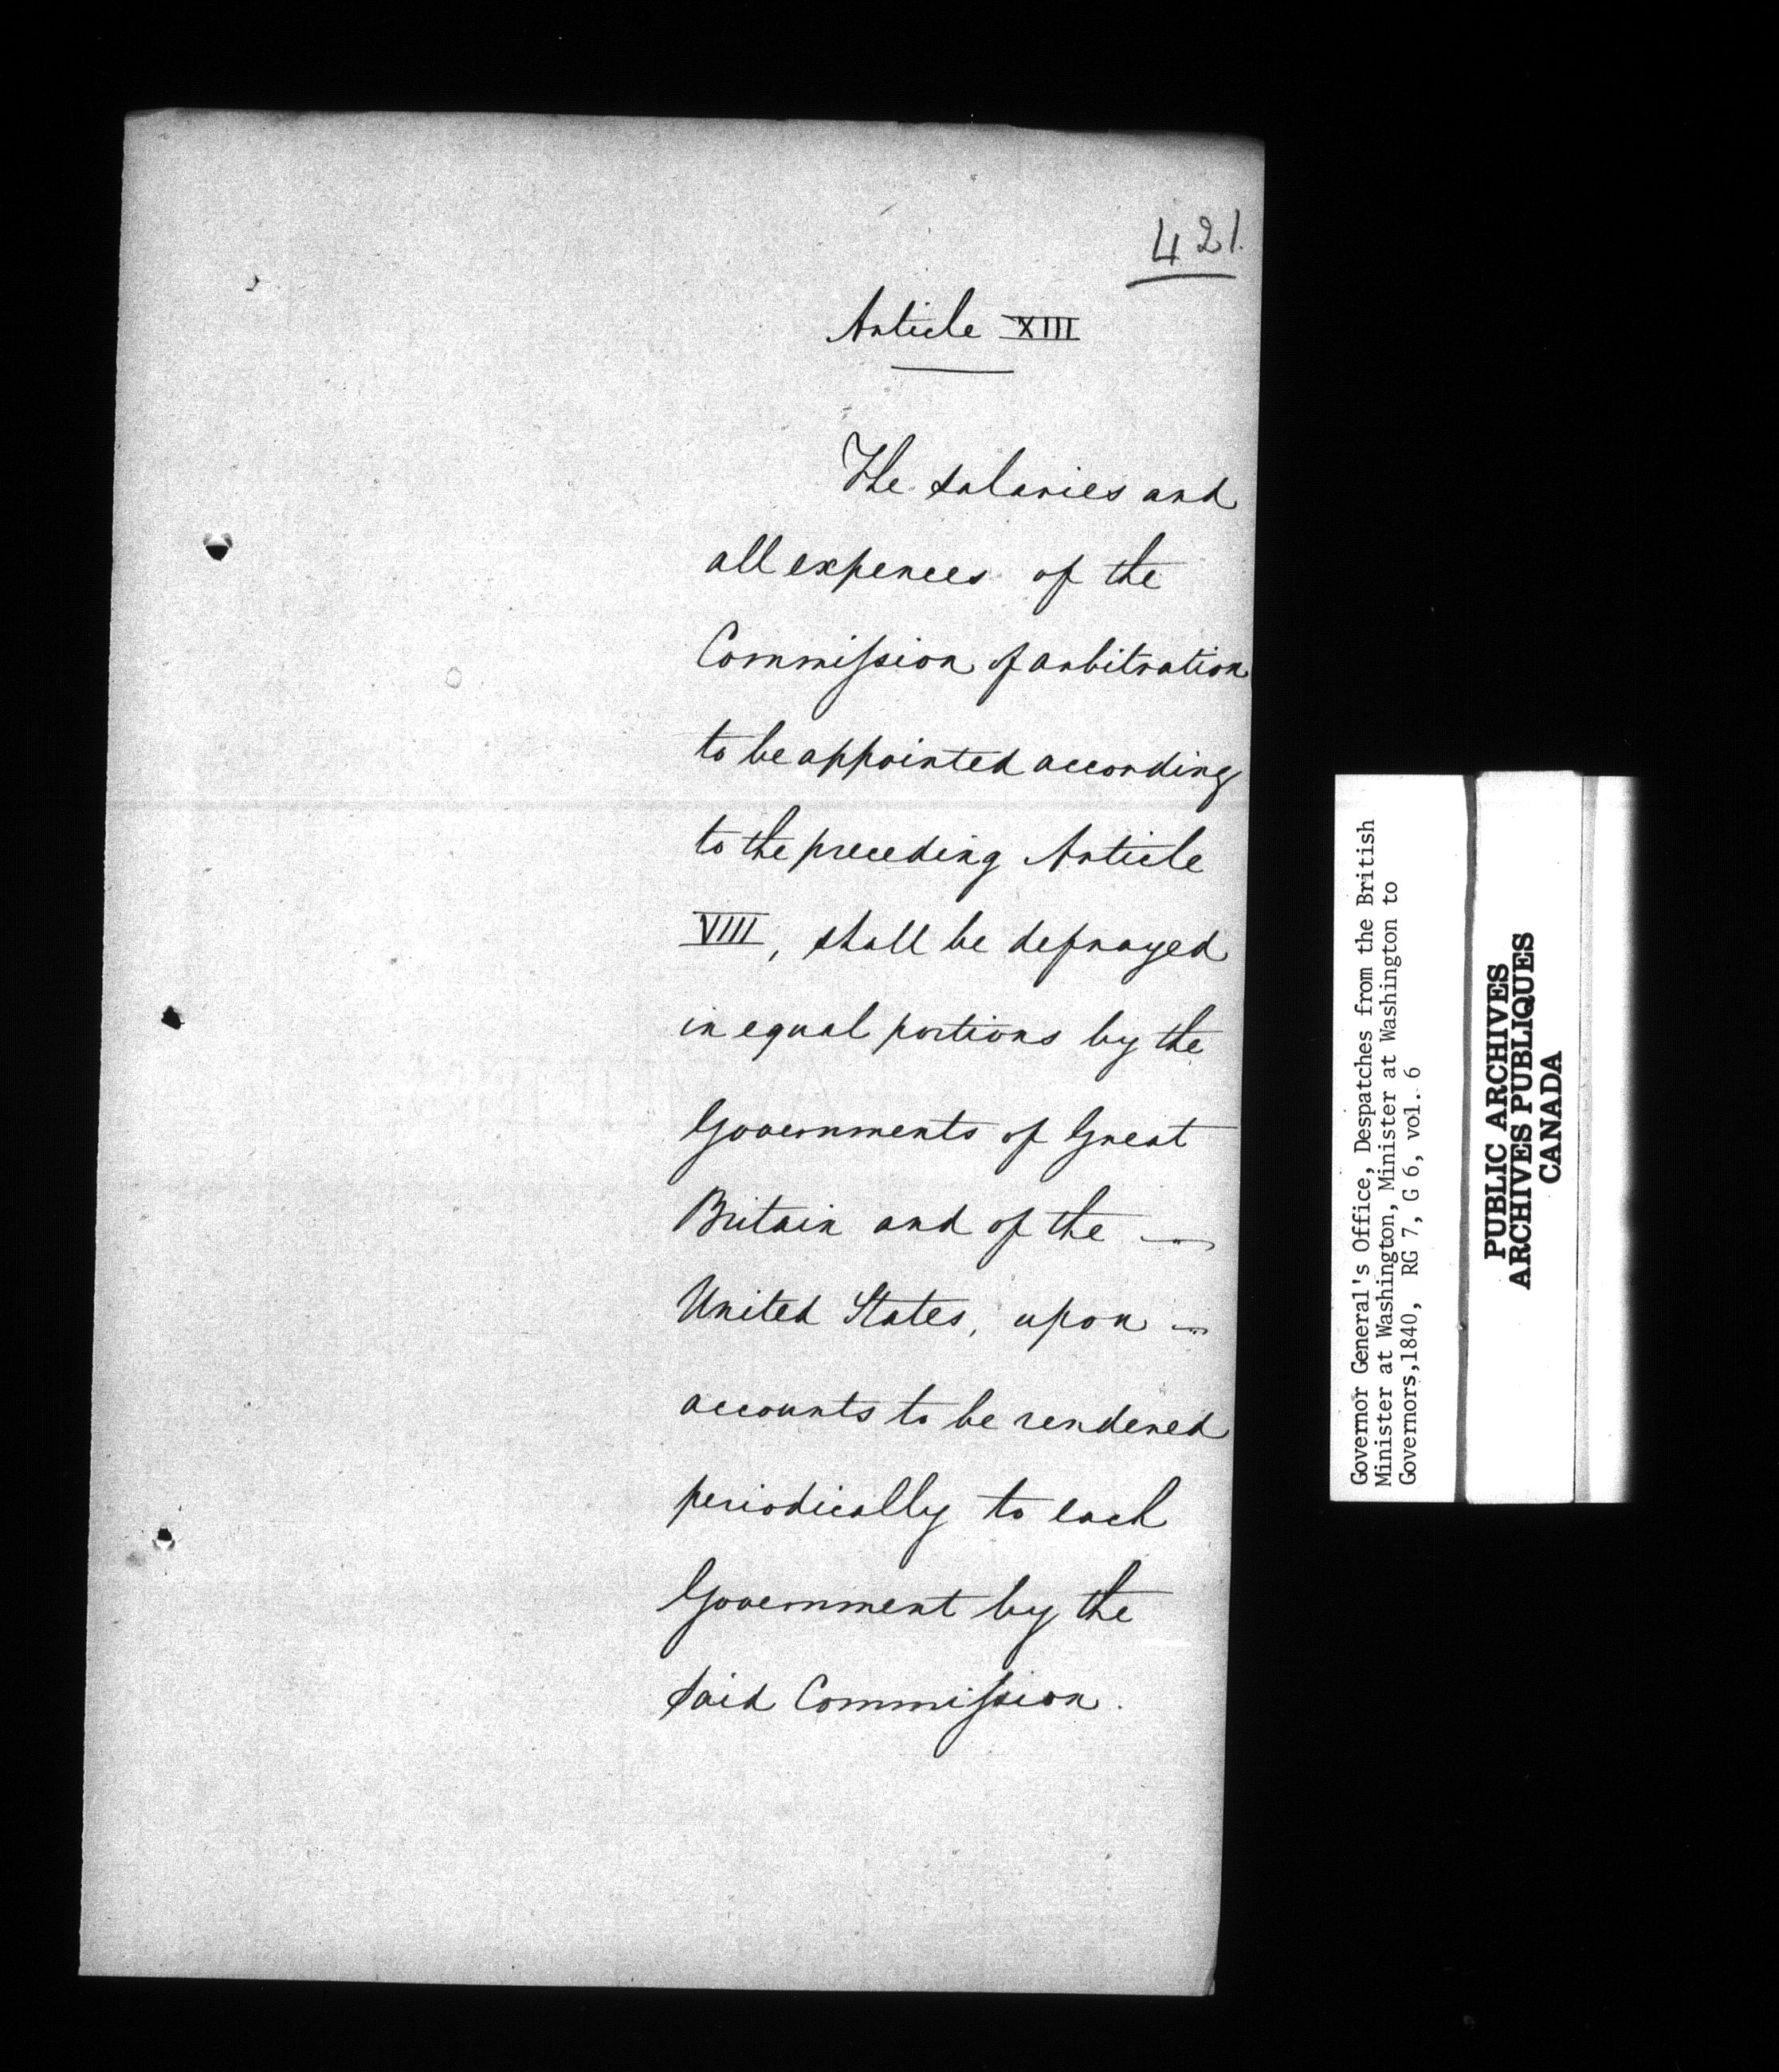 421.
Article XIII
The salaries and
all expences of the
Commission of arbitration
to be appointed according
to the preceding Article
VIII, shall be defrayed
in equal portions by the
Governments of Great
Britain and of the —
United States, upon —
accounts to be rendered
periodically to each
Government by the
said Commission.
Governor General's Office, Despatches from the British
Minister at Washington, Minister at Washington to
Governors,1840, RG 7, G 6, vol. 6
PUBLIC ARCHIVES
ARCHIVES PUBLIQUES
CANADA